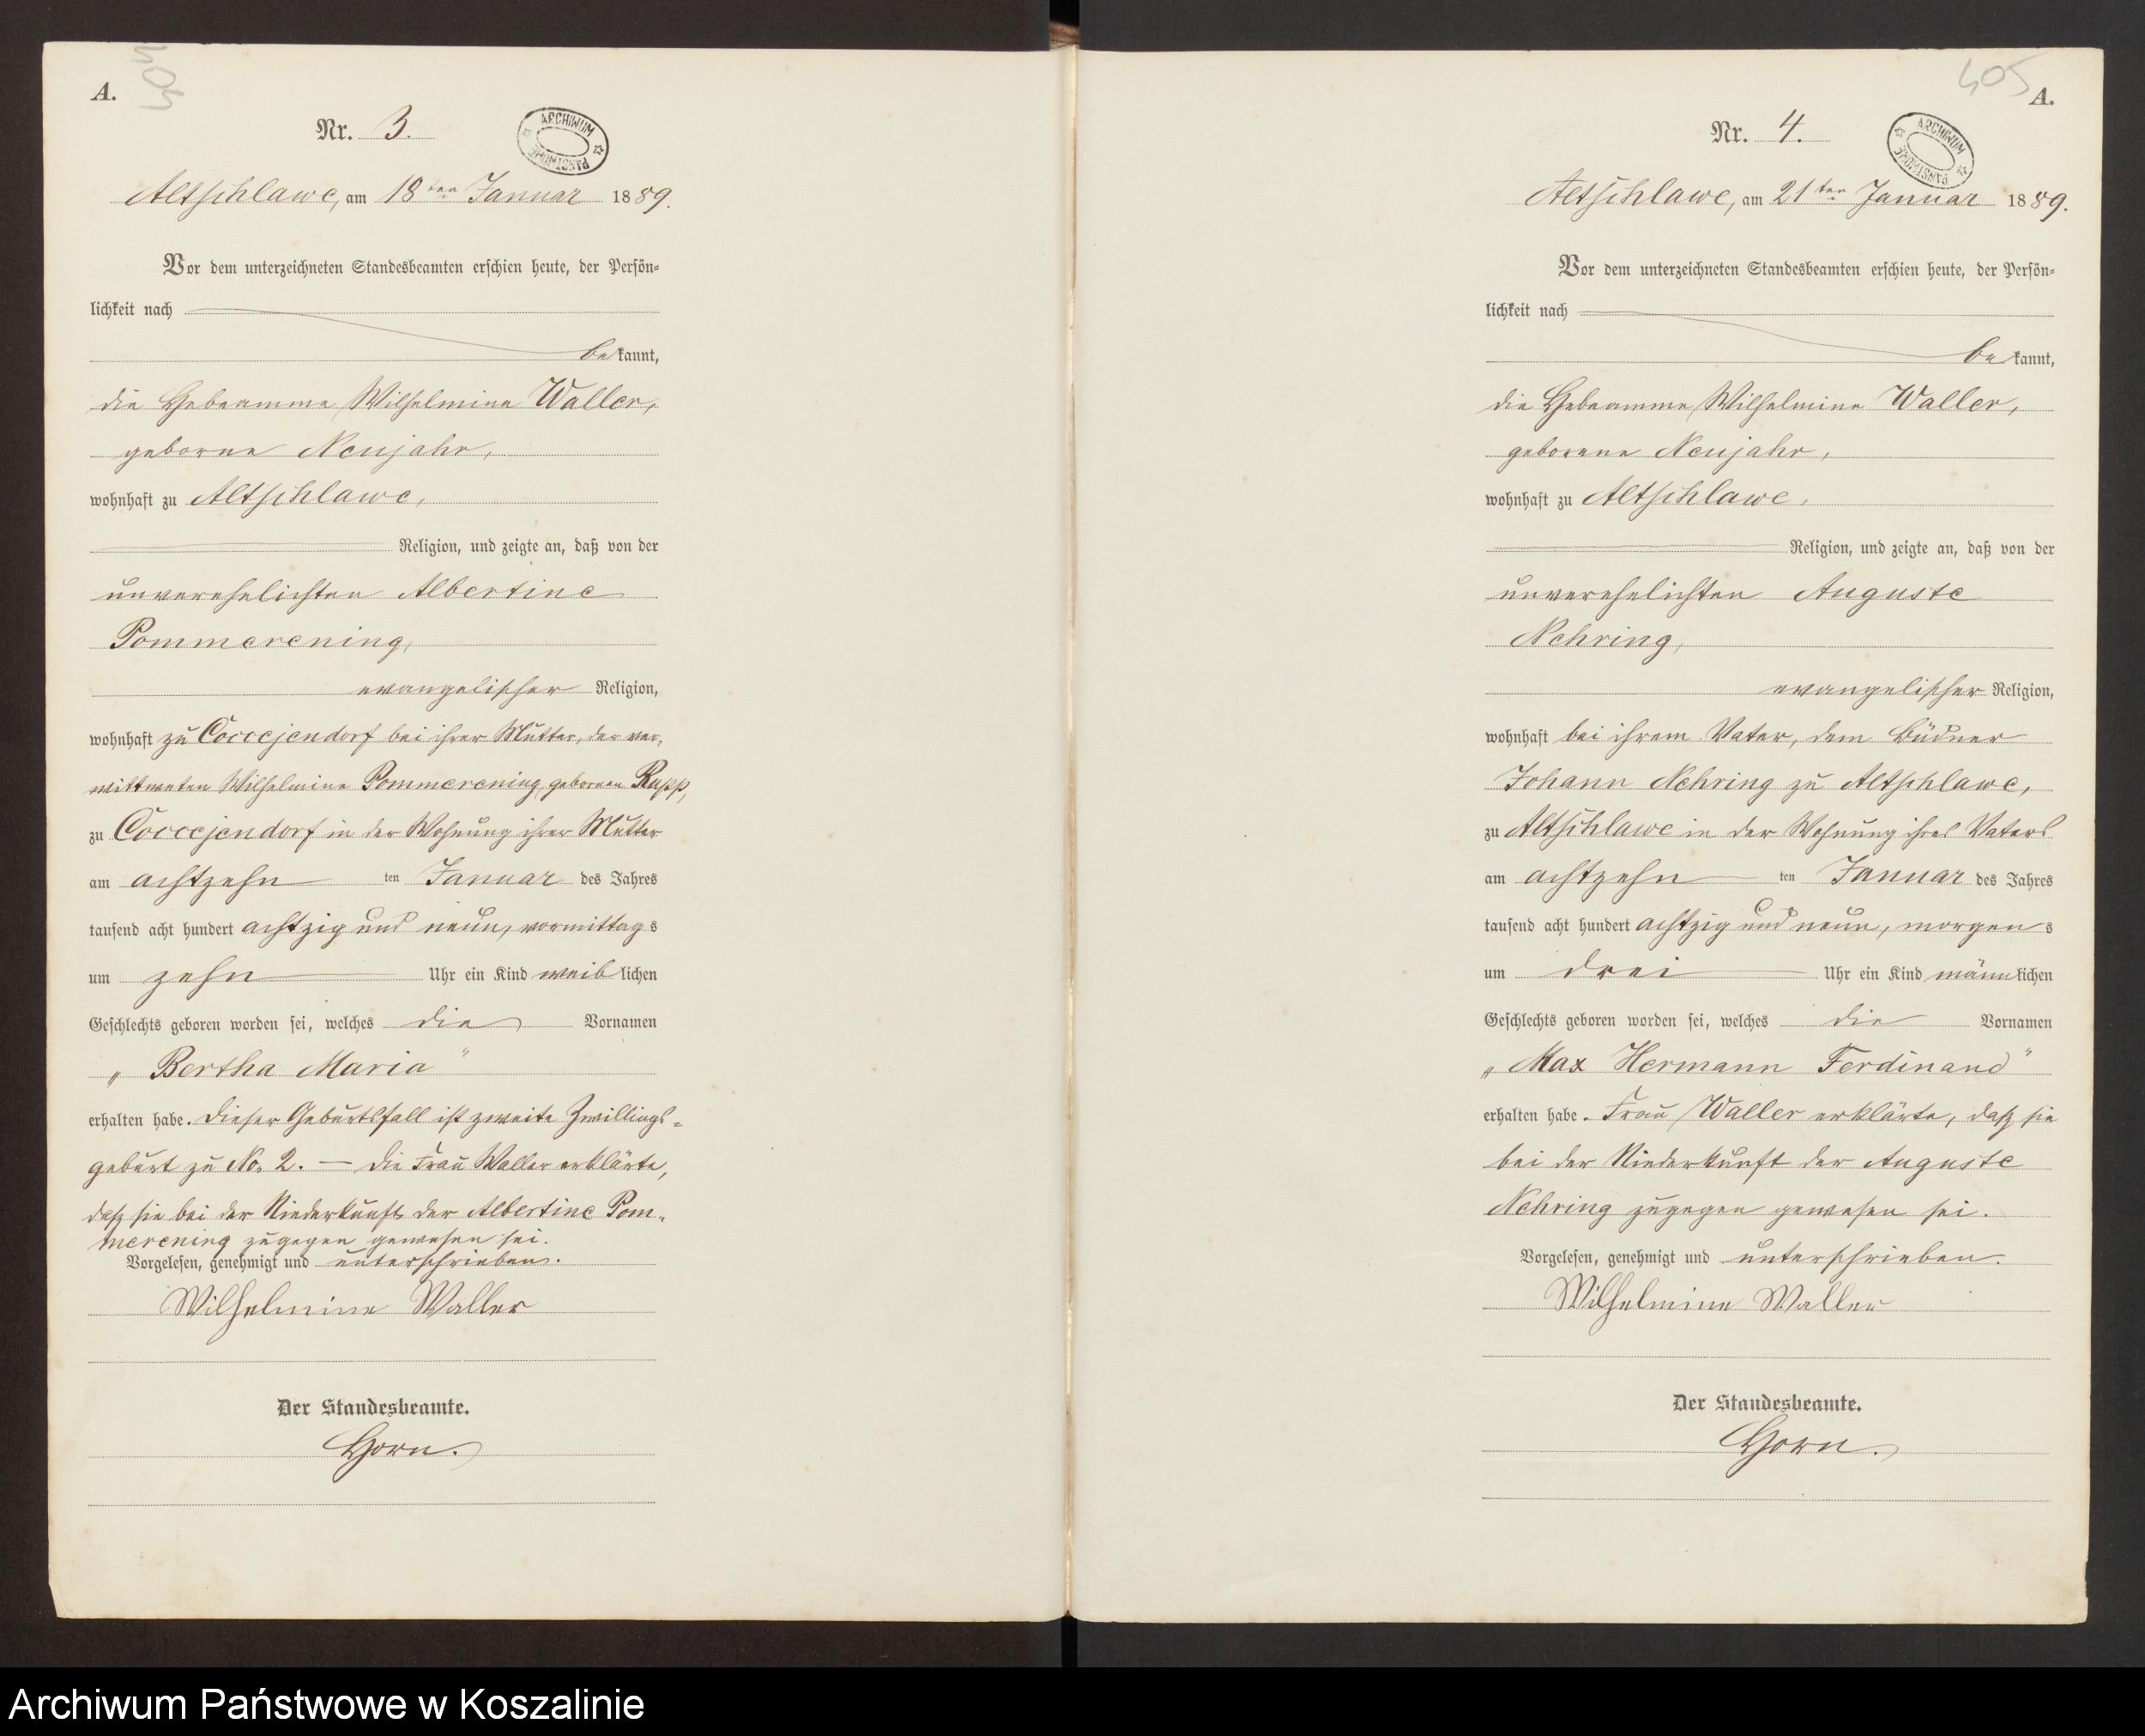 A.
404
Nr. 3.
ARCHIWUM PAŃSTWOWE
Altschlawe, am 18ten Januar 1889.
Vor dem unterzeichneten Standesbeamten erschien heute, der Persön-
lichkeit nach
bekannt,
die Hebeamme Wilhelmine Waller,
geborne Neujahr,
wohnhaft zu Altschlawe,
Religion, und zeigte an, daß von der
unverehelichten Albertine
Pommerening,
evangelischer Religion,
wohnhaft zu Coccejendorf bei ihrer Mutter, der ver-
wittweten Wilhelmine Pommerening, gebornen Rapp,
zu Coccejendorf in der Wohnung ihrer Mutter
am achtzehn ten Januar des Jahres
tausend acht hundert achtzig und neun, vormittags
um zehn Uhr ein Kind weiblichen
Geschlechts geboren worden sei, welches die Vornamen
„Bertha Maria“
erhalten habe. Dieser Geburtsfall ist zweite Zwillings-
geburt zu No. 2. — Die Frau Waller erklärte,
daß sie bei der Niederkunft der Albertine Pom-
merening zugegen gewesen sei.
Vorgelesen, genehmigt und unterschrieben.
Wilhelmine Waller
Der Standesbeamte.
Horn.
405
A.
Nr. 4.
ARCHIWUM PAŃSTWOWE
Altschlawe, am 21ten Januar 1889.
Vor dem unterzeichneten Standesbeamten erschien heute, der Persön-
lichkeit nach
bekannt,
die Hebeamme Wilhelmine Waller,
geborene Neujahr,
wohnhaft zu Altschlawe,
Religion, und zeigte an, daß von der
unverehelichten Auguste
Nehring,
evangelischer Religion,
wohnhaft bei ihrem Vater, dem Büdner
Johann Nehring zu Altschlawe,
zu Altschlawe in der Wohnung ihres Vaters
am achtzehn ten Januar des Jahres
tausend acht hundert achtzig und neun, morgens
um drei Uhr ein Kind männlichen
Geschlechts geboren worden sei, welches die Vornamen
„Max Hermann Ferdinand“
erhalten habe. Frau Waller erklärte, daß sie
bei der Niederkunft der Auguste
Nehring zugegen gewesen sei.
Vorgelesen, genehmigt und unterschrieben.
Wilhelmine Waller
Der Standesbeamte.
Horn.
Archiwum Państwowe w Koszalinie